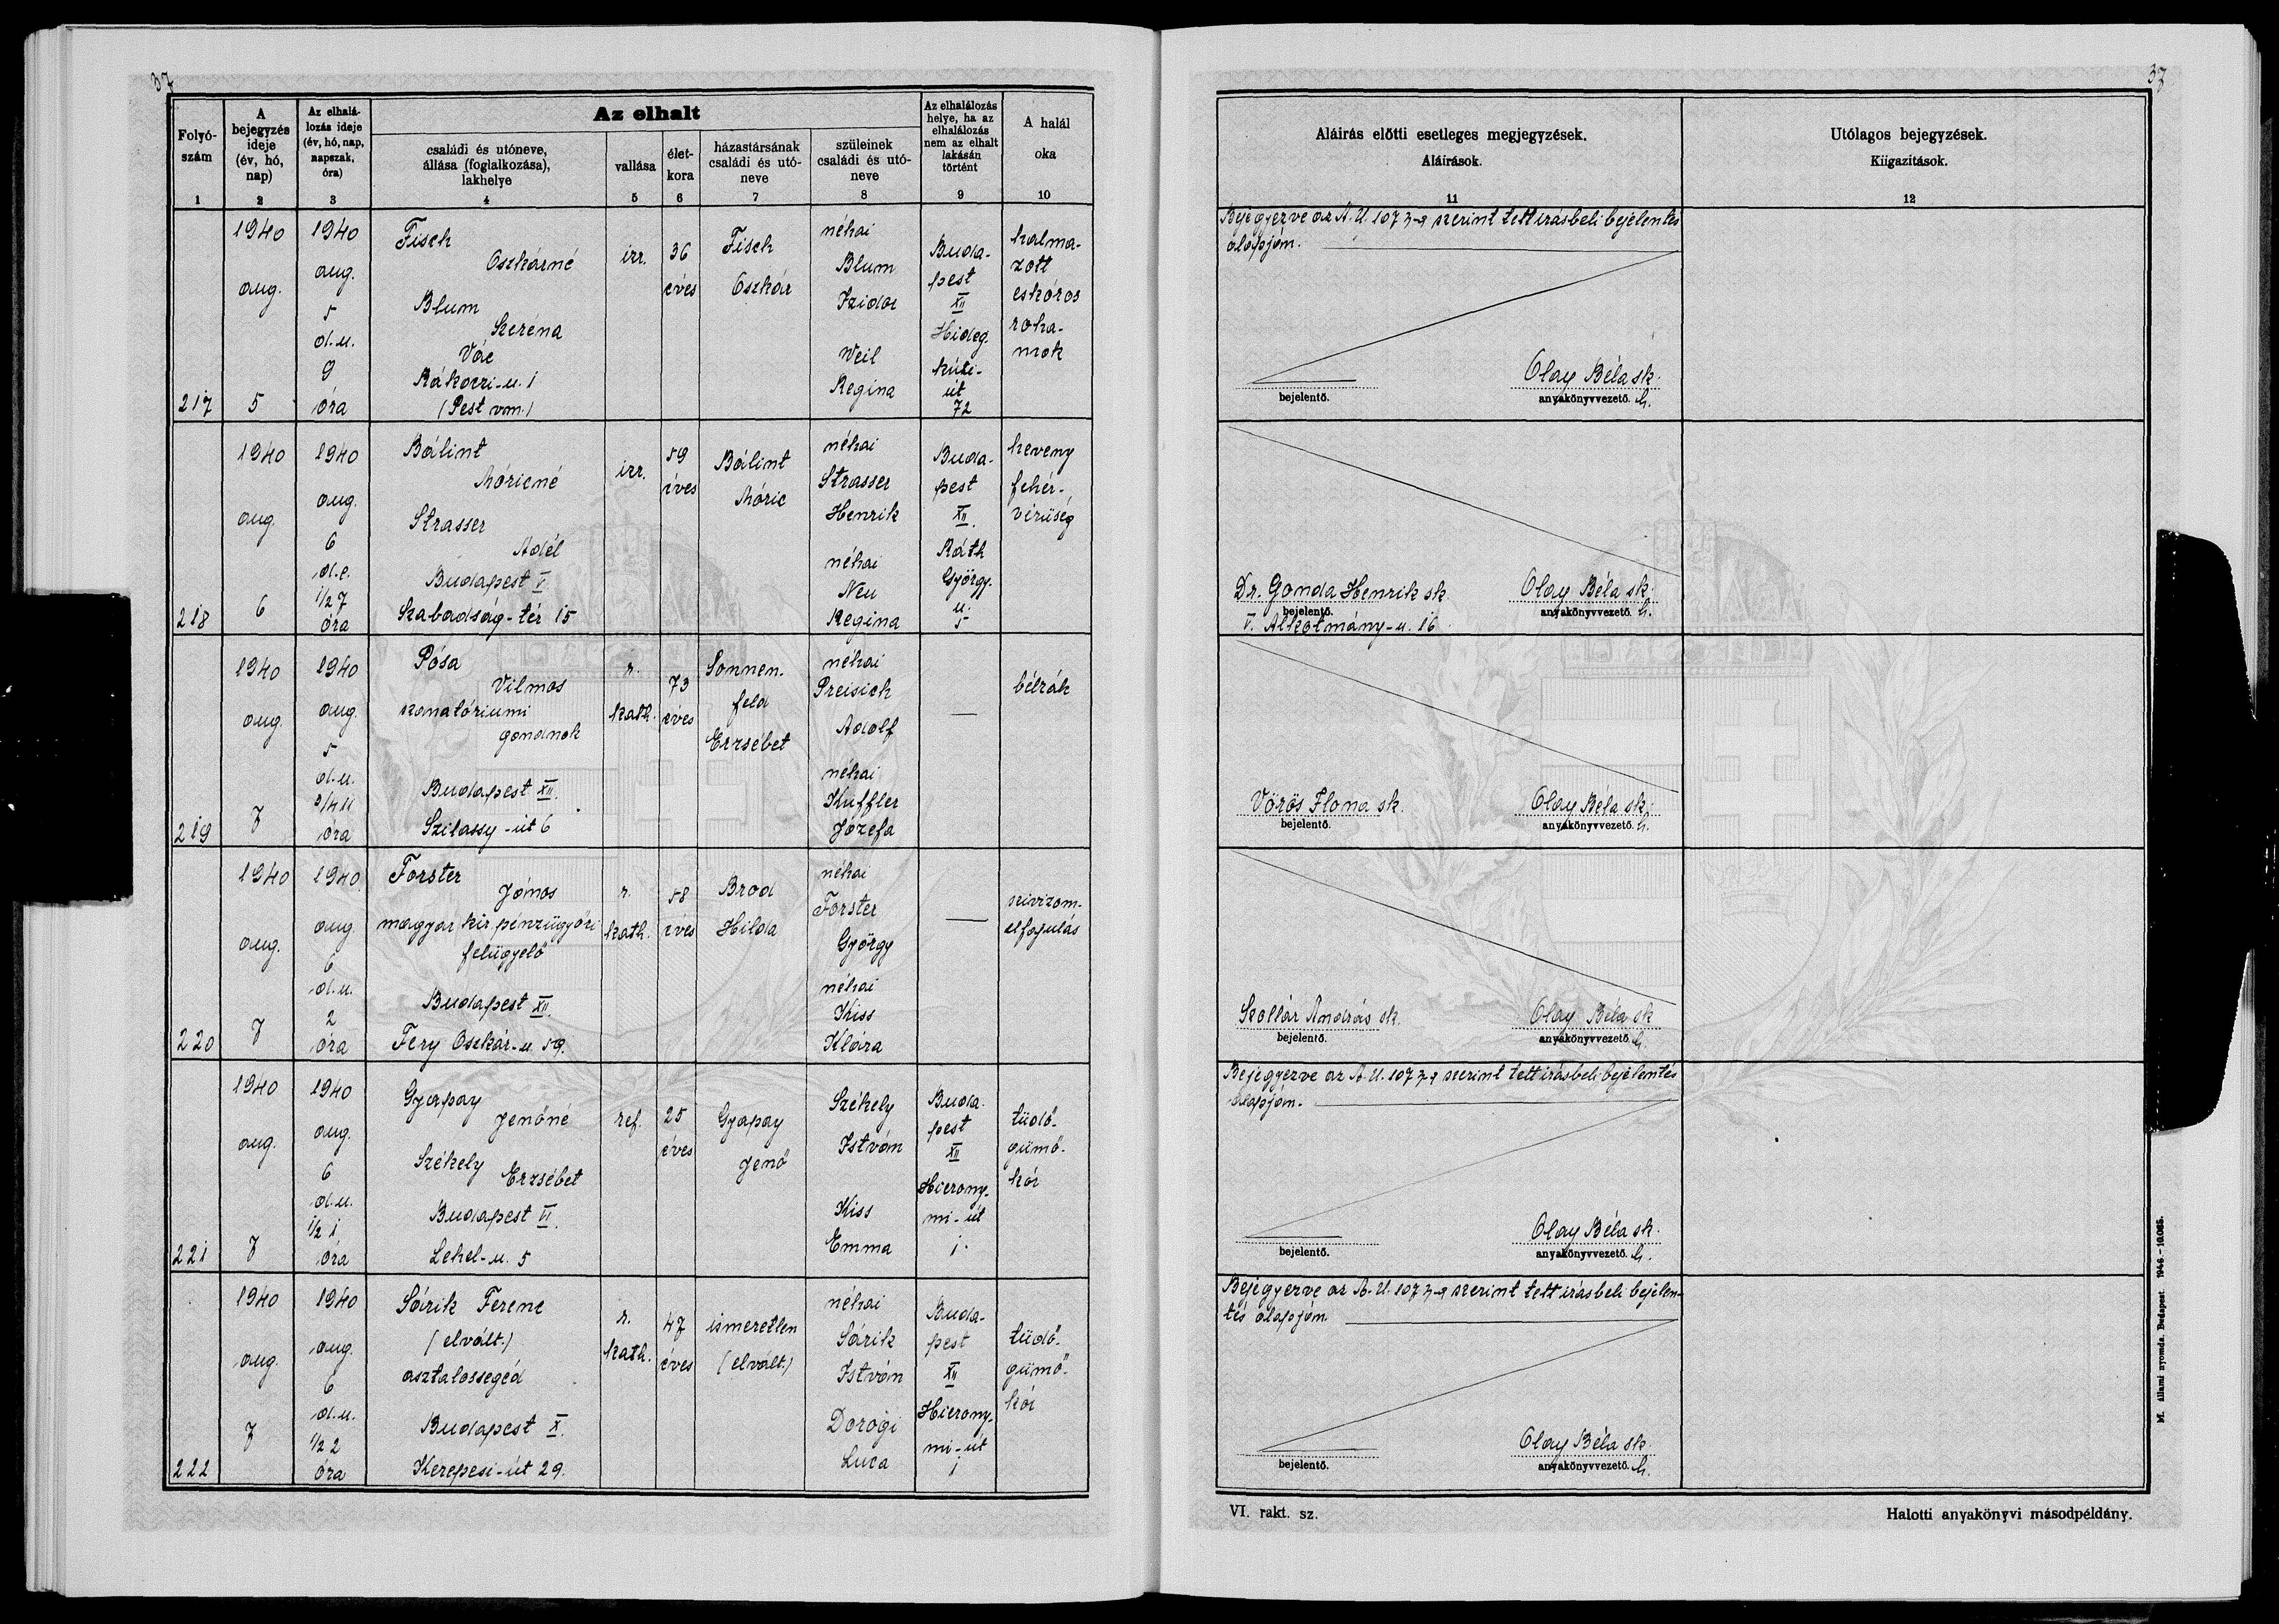 37
Folyó-
szám
1
A
bejegyzés
ideje
(év, hó,
nap)
2
Az elhalá-
lozás ideje
(év, hó, nap,
napszak,
óra)
3
Az elhalt
családi és utóneve,
állása (foglalkozása),
lakhelye
4
vallása
5
élet-
kora
6
házastársának
családi és utó-
neve
7
szüleinek
családi és utó-
neve
8
Az elhalálozás
helye, ha az
elhalálozás
nem az elhalt
lakásán
történt
9
A halál
oka
10
217
1940
aug.
5
1940
aug.
5
d.u.
9
óra
Fisch
Oszkárné
Blum
Szeréna
Vác
Rákoczi-u. 1
(Pest vm.)
izr.
36
éves
Fisch
Oszkár
néhai
Blum
Izidor
Weil
Regina
Buda-
pest
XII
Hideg-
kúti-
út
72
halmo-
zott
eskóros
roha-
mok
218
1940
aug.
6
1940
aug.
6
d.e.
1/2 7
óra
Bálint
Móricné
Strasser
Adél
Budapest V.
Szabadság-tér 15
izr.
59
éves
Bálint
Móric
néhai
Strasser
Henrik
néhai
Neu
Regina
Buda-
pest
XII.
Ráth
György-
u.
5
heveny
fehér-
vérüség
219
1940
aug.
7
1940
aug.
5
d.u.
3/4 11
óra
Pósa
Vilmos
szanatóriumi
gondnok
Budapest XII.
Szilassy-út 6
r.
kath.
73
éves
Sonnen-
feld
Erzsébet
néhai
Preisich
Adolf
néhai
Kuffler
Józefa
—
bélrák
220
1940
aug.
7
1940
aug.
6
d.u.
2
óra
Forster
János
magyar kir. pénzügyőri
felügyelő
Budapest XII.
Fery Oszkár-u. 59.
r.
kath.
58
éves
Brod
Hilda
néhai
Forster
György
néhai
Kiss
Klára
—
szivizom-
elfajulás
221
1940
aug.
7
1940
aug.
6
d.u.
1/2 1
óra
Gyapay
Jenőné
Székely
Erzsébet
Budapest VI.
Lehel-u. 5
ref.
25
éves
Gyapay
Jenő
Székely
István
Kiss
Emma
Buda-
pest
XII
Hierony-
mi-út
1.
tüdő-
gümő-
kór
222
1940
aug.
7
1940
aug.
6
d.u.
1/2 2
óra
Sárik Ferenc
(elvált.)
asztalossegéd
Budapest X.
Kerepesi-út 29.
r.
kath.
47
éves
ismeretlen
(elvált.)
néhai
Sárik
István
Dorogi
Luca
Buda-
pest
XII
Hierony-
mi-út
1
tüdő-
gümő-
kór
37
Aláírás előtti esetleges megjegyzések.
Aláírások.
11
Utólagos bejegyzések.
Kiigazítások.
12
Bejegyezve az A.U. 107 §-a szerint tett irásbeli bejelentés
alapján.
Olay Béla sk.
bejelentő.
anyakönyvvezető. h.
Dr. Gonda Henrik sk.
Olay Béla sk.
bejelentő.
anyakönyvvezető. h.
V. Alkotmány-u. 16
Vörös Ilona sk.
Olay Béla sk.
bejelentő.
anyakönyvvezető. h.
Szollár András sk.
Olay Béla sk
bejelentő.
anyakönyvvezető. h.
Bejegyezve az A.U. 107 §-a szerint tett irásbeli bejelentés
alapján.
Olay Béla sk.
bejelentő.
anyakönyvvezető. h.
Bejegyezve az A.U. 107 §-a szerint tett irásbeli bejelen-
tés alapján.
Olay Béla sk.
bejelentő.
anyakönyvvezető. h.
VI. rakt. sz.
Halotti anyakönyvi másodpéldány.
M. állami nyomda. Budapest. 1946. – 10.085.